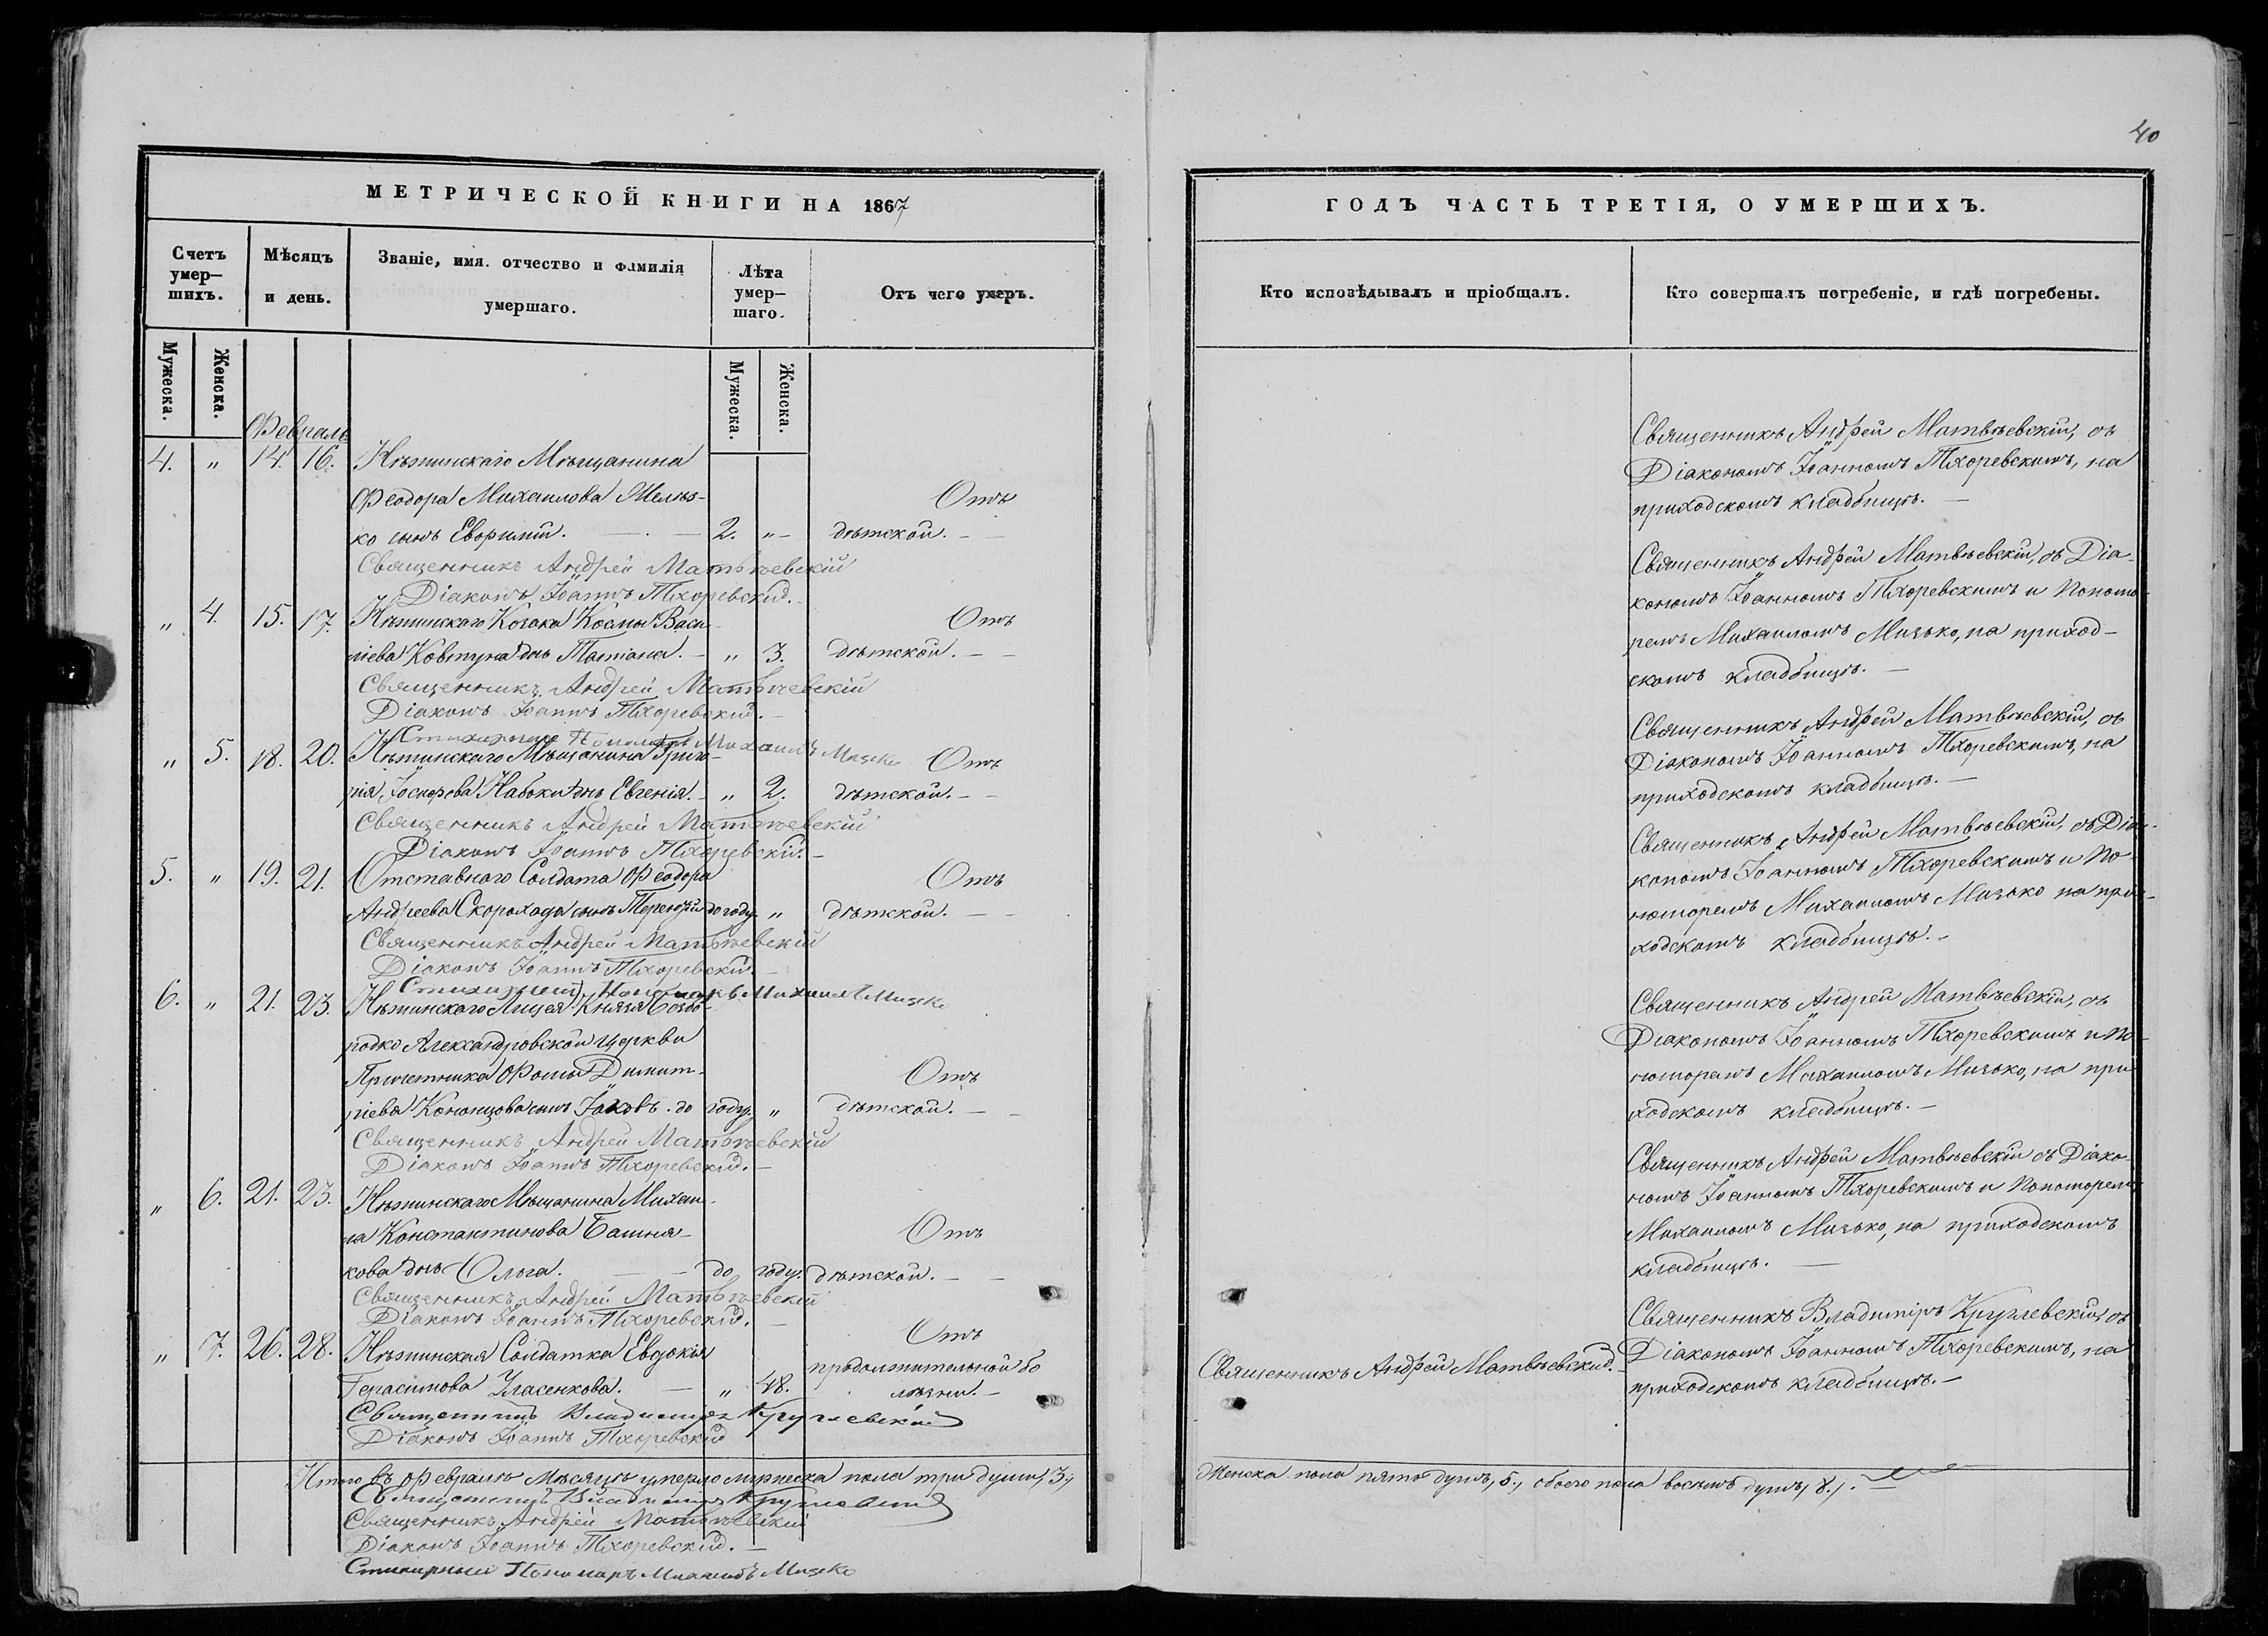 МЕТРИЧЕСКОЙ КНИГИ НА 1867
Счетъ умер-шихъ.
Мѣсяцъ и день.
Званіе, имя. отчество и фамилія умершаго.
Лѣта умер-шаго.
Отъ чего умеръ.
Мужеска.
Женска.
Мужеска.
Женска.
Февраль
4. " 14. 16. Нѣжинскаго Мѣщанина
Феодора Михаилова Мелѣз- Отъ
ко сынъ Евѳимій. — 2. " — дѣтской. —
Священникъ Андрей Матвѣевскій
Діаконъ Іоаннъ Тхоревскій.
" 4. 15. 17. Нѣжинскаго Козака Космы Васи- Отъ
ліева Ковтуна дчь Татіана. — " 3. дѣтской. —
Священникъ Андрей Матвѣевскій
Діаконъ Іоаннъ Тхоревскій. —
Стихарный Пономарь Михаилъ Мизко
" 5. 18. 20. Нѣжинскаго Мѣщанина Григо- Отъ
рія Іосифова Навоки дчь Евгенія. — " 2. дѣтской. —
Священникъ Андрей Матвѣевскій
Діаконъ Іоаннъ Тхоревскій. —
5. " 19. 21. Отставнаго Солдата Феодора Отъ
Андреева Скорохода сынъ Терентій до году. " дѣтской. —
Священникъ Андрей Матвѣевскій
Діаконъ Іоаннъ Тхоревскій. —
Стихарный Пономарь Михаилъ Мизко
6. " 21. 23. Нѣжинскаго Лицея Князя Безбо-
родко Александровской церкви
Причетника Фомы Димит- Отъ
ріева сынъ Іаковъ. до году. " дѣтской. —
Священникъ Андрей Матвѣевскій
Діаконъ Іоаннъ Тхоревскій. —
" 6. 21. 23. Нѣжинскаго Мѣщанина Михаи-
ла Константинова Башма- Отъ
кова дчь Ольга. — до году. дѣтской. —
Священникъ Андрей Матвѣевскій
Діаконъ Іоаннъ Тхоревскій. —
Отъ
" 7. 26. 28. Нѣжинская Солдатка Евдокія продолжительной бо
Герасимова Власенкова. — " 48. лѣзни. —
Священникъ Владимиръ Круглевскій
Діаконъ Іоаннъ Тхоревскій
Итого въ Февралѣ Мѣсяцѣ умерло мужеска пола три души, 3.,
Священникъ Владимиръ Круглевскій
Священникъ Андрей Матвѣевскій
Діаконъ Іоаннъ Тхоревскій. —
Стихарный Пономарь Михаилъ Мизко
40
ГОДЪ ЧАСТЬ ТРЕТІЯ, О УМЕРШИХЪ.
Кто исповѣдывалъ и пріобщалъ.
Кто совершалъ погребеніе, и гдѣ погребены.
Священникъ Андрей Матвѣевскій, съ
Діакономъ Іоанномъ Тхоревскимъ, на
приходскомъ кладбищѣ. —
Священникъ Андрей Матвѣевскій, съ Діа-
кономъ Іоанномъ Тхоревскимъ и Понома-
ремъ Михаиломъ Мизько, на приход-
скомъ кладбищѣ. —
Священникъ Андрей Матвѣевскій, съ
Діакономъ Іоанномъ Тхоревскимъ, на
приходскомъ кладбищѣ. —
Священникъ Андрей Матвѣевскій, съ Діа-
кономъ Іоанномъ Тхоревскимъ и По-
номоремъ Михаиломъ Мизько на при-
ходскомъ кладбищѣ. —
Священникъ Андрей Матвѣевскій, съ
Діакономъ Іоанномъ Тхоревскимъ и По-
номоремъ Михаиломъ Мизько, на при
ходскомъ кладбищѣ. —
Священникъ Андрей Матвѣевскій съ Діако-
номъ Іоанномъ Тхоревскимъ и Пономорем
Михаиломъ Мизько, на приходскомъ
кладбищѣ. —
Священникъ Владимиръ Круглевскій, съ
Священникъ Андрей Матвѣевскій. Діакономъ Іоанномъ Тхоревскимъ, на
приходскомъ кладбищѣ. —
Женска пола пять душъ, 5., обоего пола восемь душъ, 8.,. —